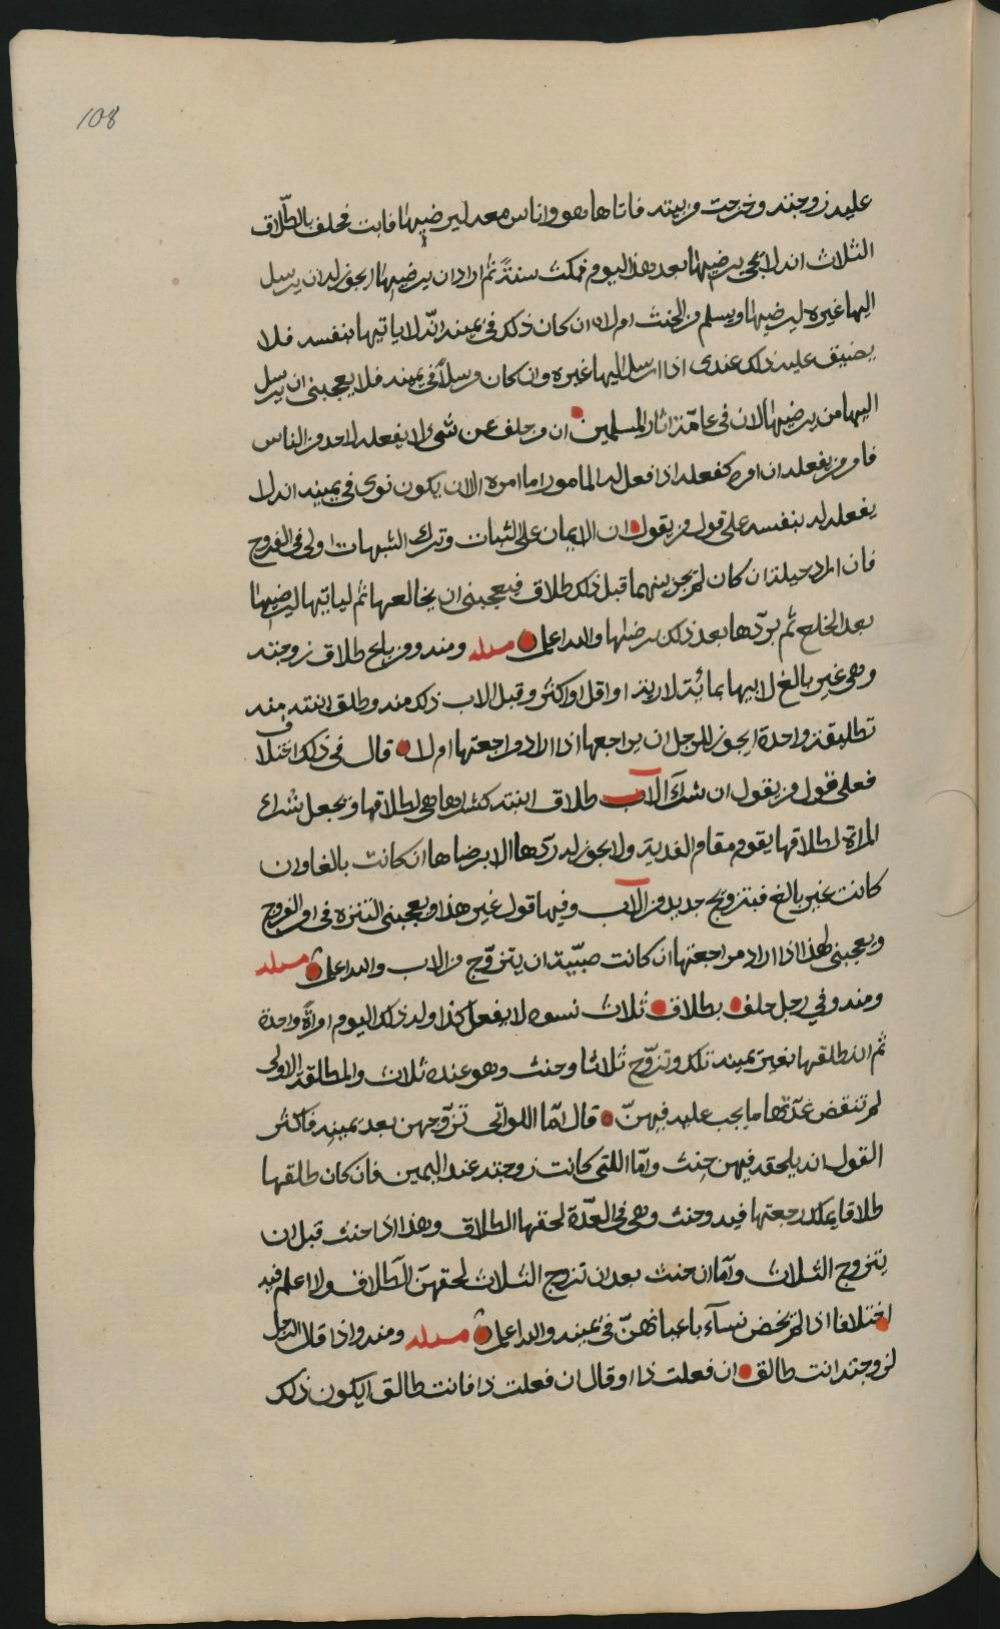 108
عليه زوجته وخرجت من بيته فاتاها هو واناس معه ليرضيها فابت فحلف بالطّلاق
الثلاث انه لا يجي يرضيها بعد هذا اليوم فمكث سنةً ثم اراد ان يرضيها ايجوز له ان يرسل
اليها غيره ليرضيها ويسلم من الحنث ام لا ان كان ذلك في يمينه انّه لا ياتيها بنفسه فلا
يضيق عليه ذلك عندي اذا ارسل اليها غيره وان كان مرسلاً في يمينه فلا يعجبني ان يرسل
اليها من يرضيها لان في عامّة اثار المسلمين ان من حلف عن شيء لا يفعله لاحد من الناس
فامر من يفعله ان امره كفعله اذا فعل له المامور اما امره الا ان يكون نوى في يمينه انه لا
يفعله له بنفسه على قول من يقول ان الايمان على النيات وترك الشبهات اولى في الفروج
فان اراد حيلة ان كان لم يجر بينهما قبل ذلك طلاق فيعجبني ان يخالعها ثم لياتيها ليرضيها
بعد الخلع ثم يردّها بعد ذلك برضاها والله اعلم مسله ومنه ومن باع طلاق زوجته
وهي غير بالغ لابيها بمائة لارية او اقل او اكثر وقبل الاب ذلك منه وطلق ابنته منه
تطليقة واحدة ايجوز للرجل ان يراجعها اذا اراد مراجعتها ام لا قال في ذلك اختلاف
فعلى قول من يقول ان شرآء الاب طلاق ابنته كشراها هي لطلاقها ويجعل شراء
المراة لطلاقها يقوم مقام الفدية ولا يجوز له ردّها الا برضاها ان كانت بالغا وان
كانت غير بالغ فبتزويج جديد من الاب وفيها قول غير هذا ويعجبني التنزه في امر الفروج
ويعجبني لهذا اذا اراد مراجعتها ان كانت صبيّة ان يتزوّج من الاب والله اعلم مسله
ومنه وفي رجل حلف بطلاق ثلاث نسوه لا يفعل كذا وله ذلك اليوم امراةً واحدة
ثم انه طلقها بغير يمينه تلك وتزوّج ثلاثا وحنث وهو عنده ثلاث والمطلقة الاولى
لم تنقض عدّتها ما يجب عليه فيهنّ قال امّا اللواتي تزوّجهن بعد يمينه فاكثر
القول انه يلحقه فيهن حِنث وامّا اللتي كانت زوجته عند اليمين فان كان طلقها
طلاقا يملك رجعتها فيه وحنث وهي في العدّة لحقها الطلاق وهذا اذا حنث قبل ان
يتزوج الثلاث وامّا ان حنث بعد ان تزوج الثلاث لحقهنّ الطلاق ولا اعلم فيه
اختلافا اذا لم يخص نسآء باعيانهنّ في يمينه والله اعلم مسله ومنه واذا قال الرجل
لزوجته انت طالق ان فعلت ذا او قال ان فعلت ذا فانت طالق ايكون ذلك